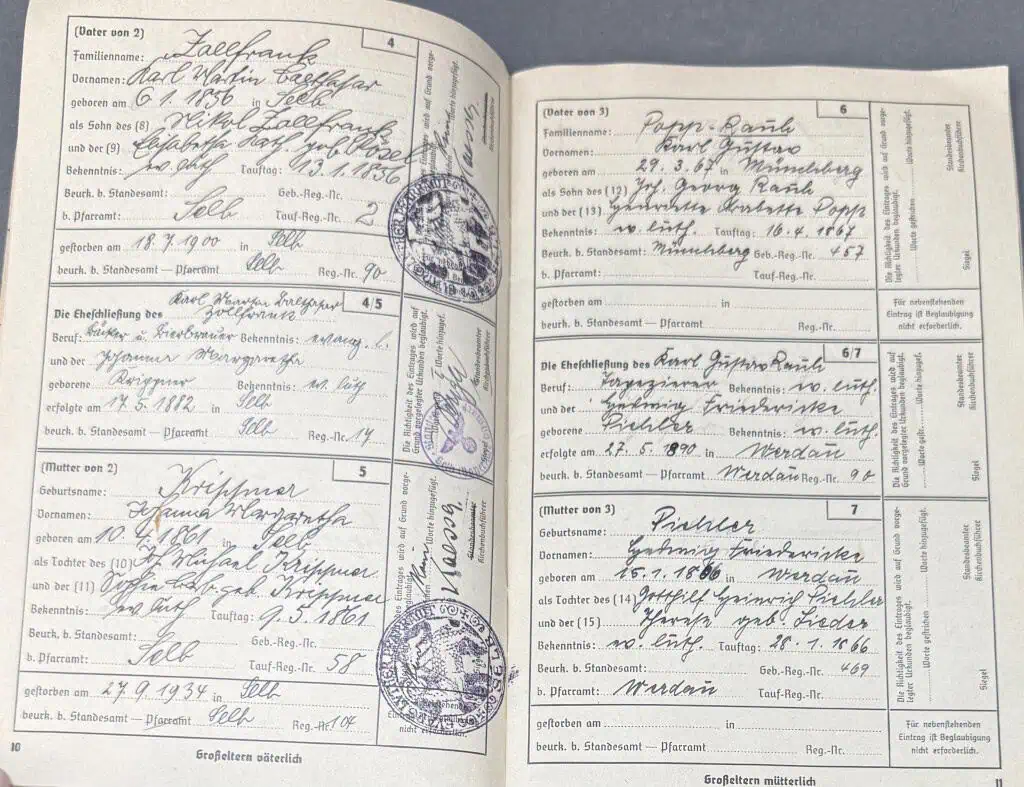 (Vater von 2) 4
Familienname: Zollfrank
Vornamen: Karl Martin Balthasar
geboren am 6.1.1856 in Selb
als Sohn des (8) Nikol Zollfrank
und der (9) Elisabetha Kath. geb. Pösel
Bekenntnis: ev. luth Tauftag: 13.1.1856
Beurk. b. Standesamt: Geb.-Reg.-Nr.
b. Pfarramt: Selb Tauf-Reg.-Nr. 2
gestorben am 18.7.1900 in Selb
beurk. b. Standesamt — Pfarramt Selb Reg.-Nr. 90
Die Richtigkeit des Eintrages wird auf Grund vorgelegter Urkunden beglaubigt.
Kein Worte hinzugefügt.
Standesbeamter
Kirchenbuchführer
Die Eheschließung des Karl Martin Balthasar Zollfrank 4/5
Beruf: Bäcker u. Bierbrauer Bekenntnis: evang. l.
und der Johanna Margaretha
geborene Krippner Bekenntnis: ev. luth
erfolgte am 17.5.1882 in Selb
beurk. b. Standesamt — Pfarramt Selb Reg.-Nr. 14
Die Richtigkeit des Eintrages wird auf Grund vorgelegter Urkunden beglaubigt.
Worte hinzugef.
Standesbeamter
Kirchenbuchführer
Siegel
(Mutter von 2) 5
Geburtsname: Krippner
Vornamen: Johanna Margaretha
geboren am 10.4.1861 in Selb
als Tochter des (10) Joh Michael Krippner
und der (11) Sophie Barb. geb. Krippner
Bekenntnis: ev. luth Tauftag: 9.5.1861
Beurk. b. Standesamt: Geb.-Reg.-Nr.
b. Pfarramt: Selb Tauf-Reg.-Nr. 58
gestorben am 27.9.1934 in Selb
beurk. b. Standesamt — Pfarramt Selb Reg.-Nr. 104
des Eintrages wird auf Grund vorgelegter Urkunden beglaubigt.
Kein Worte hinzugefügt.
Standesbeamter
Kirchenbuchführer
Eintrag ist Beglaubigung
nicht erforderlich.
10
Großeltern väterlich
(Vater von 3) 6
Familienname: Popp-Rauh
Vornamen: Karl Gustav
geboren am 29.3.67 in Münchberg
als Sohn des (12) Joh. Georg Rauh
und der (13) Henriette Babette Popp
Bekenntnis: ev. luth. Tauftag: 16.4.1867
Beurk. b. Standesamt: Münchberg Geb.-Reg.-Nr. 457
b. Pfarramt: Tauf-Reg.-Nr.
gestorben am in
beurk. b. Standesamt — Pfarramt Reg.-Nr.
Die Richtigkeit des Eintrages wird auf Grund vorgelegter Urkunden beglaubigt.
Worte gestrichen Worte hinzugefügt.
Standesbeamter
Kirchenbuchführer
Siegel
Für nebenstehenden
Eintrag ist Beglaubigung
nicht erforderlich.
Die Eheschließung des Karl Gustav Rauh 6/7
Beruf: Tapezierer Bekenntnis: ev. luth.
und der Hedwig Friedericke
geborene Pichler Bekenntnis: ev. luth.
erfolgte am 27.5.1890 in Werdau
beurk. b. Standesamt — Pfarramt Werdau Reg.-Nr. 90
Die Richtigkeit des Eintrages wird auf Grund vorgelegter Urkunden beglaubigt.
Worte gestr. Worte hinzugef.
Standesbeamter
Kirchenbuchführer
Siegel
(Mutter von 3) 7
Geburtsname: Pichler
Vornamen: Hedwig Friedericke
geboren am 15.1.1866 in Werdau
als Tochter des (14) Gotthilf Heinrich Pichler
und der (15) Therese geb. Lieder
Bekenntnis: ev. luth. Tauftag: 28.1.1866
Beurk. b. Standesamt: Geb.-Reg.-Nr. 469
b. Pfarramt: Werdau Tauf-Reg.-Nr.
gestorben am in
beurk. b. Standesamt — Pfarramt Reg.-Nr.
Die Richtigkeit des Eintrages wird auf Grund vorgelegter Urkunden beglaubigt.
Worte gestrichen Worte hinzugefügt.
Standesbeamter
Kirchenbuchführer
Siegel
Für nebenstehenden
Eintrag ist Beglaubigung
nicht erforderlich.
Großeltern mütterlich
11